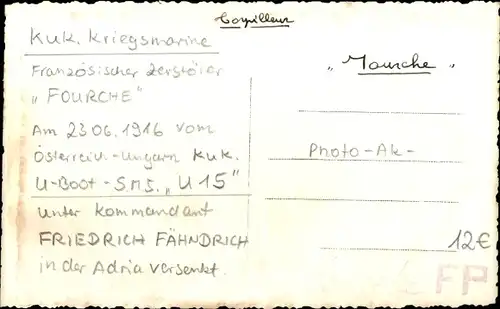 Torpilleur
K.u.K. Kriegsmarine
Französischer Zerstörer
"FOURCHE"
Am 23 06. 1916 vom
Österreich-Ungarn K.u.K.
U-Boot - S.M.S. „U 15"
unter Kommandant
FRIEDRICH FÄHNDRICH
in der Adria versenkt.
„Fourche"
Photo-Ak-
12€
FP